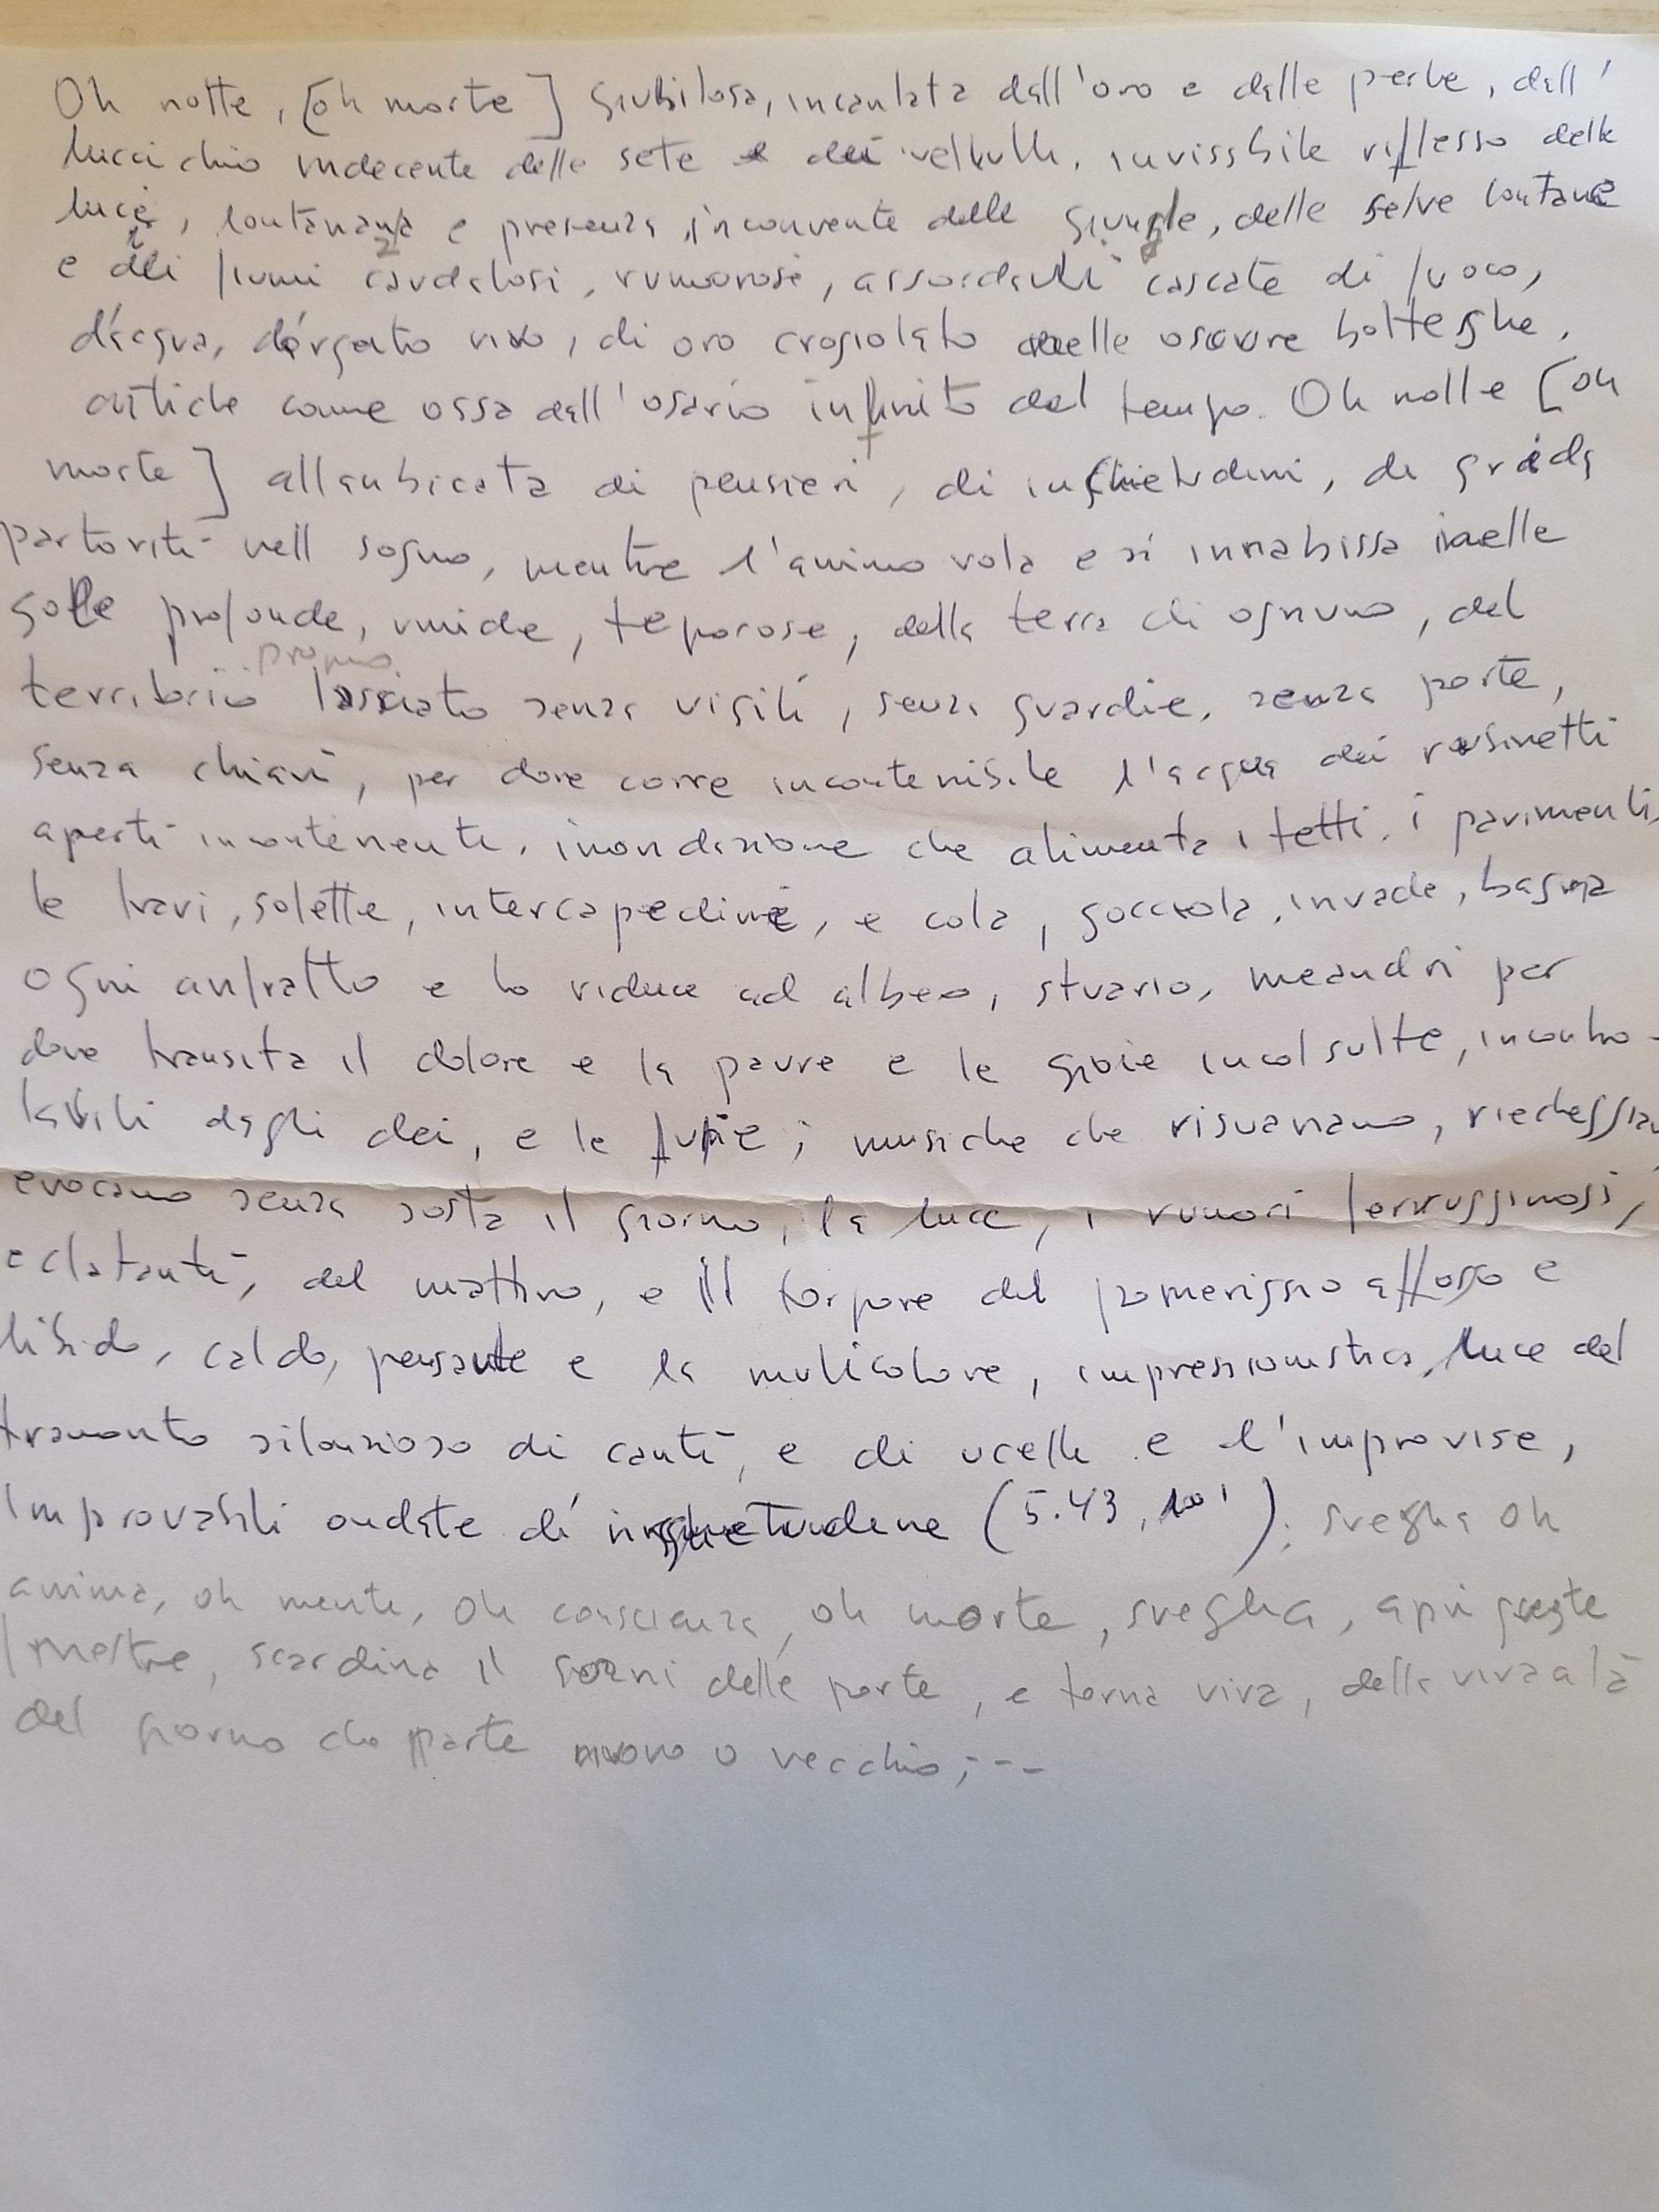 Oh notte, [oh morte] giubilosa, incantata dall'oro e dalle perle, dall'
luccichio indecente delle sete e dei velluti, invisibile riflesso della
luce, lontananza e presenza inconvente delle giungle, delle selve lontane
e dei fiumi caudalosi, rumorosi, assordanti cascate di fuoco,
d'acqua, d'argento vivo, di oro crogiolato nelle oscure botteghe,
antiche come ossa dall'osario infinito del tempo. Oh notte [oh
morte] allambicata di pensieri, di inquietudini, di grida
partoriti nell sogno, mentre l'animo vola e si innabissa nelle
gole profonde, umide, teporose, della terra di ognuno, del
proprio
territorio lasciato senza vigili, senza guardie, senza porte,
senza chiavi, per dove corre incontenibile l'acqua dei rusinetti
aperti incontenenti, inondazione che alimenta i tetti, i pavimenti,
le travi, solette, intercapedine, e cola, gocciola, invade, bagna
ogni anfratto e lo riduce ad albeo, stuario, meandri per
dove transita il dolore e la paure e le gioie incolsulte, incontro-
labili dagli dei, e le furie; musiche che risuanano, riecheggian
evocano senza sosta il giorno, la luce, i rumori ferrugginosi,
eclatanti, del mattino, e il torpore del pomeriggio affoso e
libido, caldo, pensante e la multicolore, impressionistica, luce del
tramonto silenzioso di canti, e di ucelli e l'improvise,
improvabili ondate di inquietudine (5.43, ); sveglia oh
anima, oh mente, oh conscienza, oh morte, sveglia, apri queste
finestre, scardina il delle porte, e torna viva, della
del giorno che parte nuovo o vecchio; --